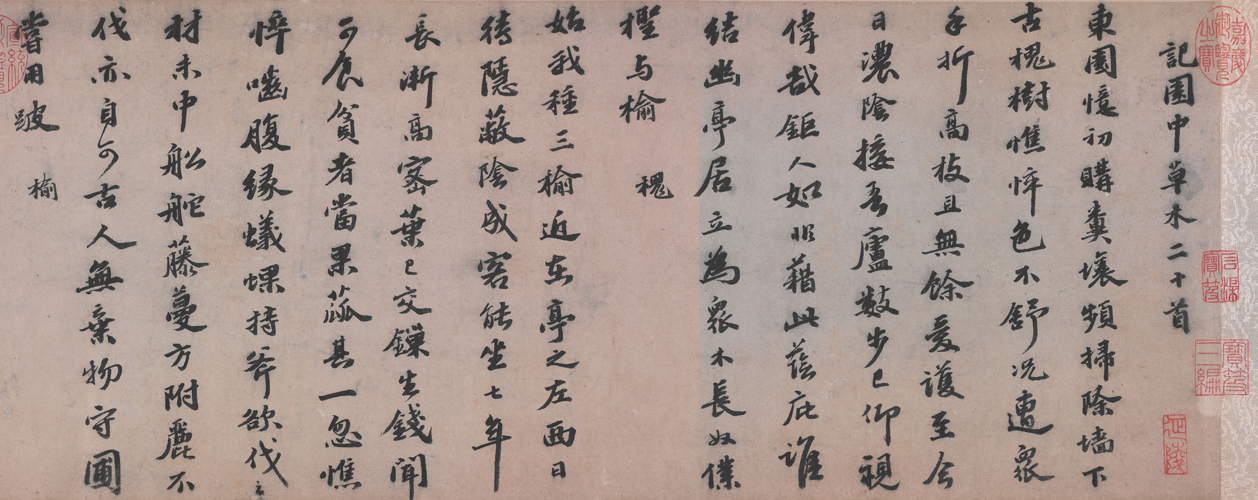 嘉慶御覽之寶
寶笈三編
記園中草木二十首
東園憶初購糞壤頻掃除墻下
古槐樹憔悴色不舒況遭眾
手折高枝且無餘愛護至今
日濃陰接吾廬數步已仰視
偉哉鉅人如非藉此蔭庇誰
結幽亭居立為眾木長奴僕
檉与榆
槐
始我種三榆近在亭之左西日
待隱蔽陰成客能坐七年
長漸高密葉已交鏁生錢聞
可食貧者當果蓏其一忽憔
悴嚙腹緣蟻蜾持斧欲伐之
材未中船舵藤蔓方附麗不
伐亦自可古人無棄物守圃
嘗用跛
榆